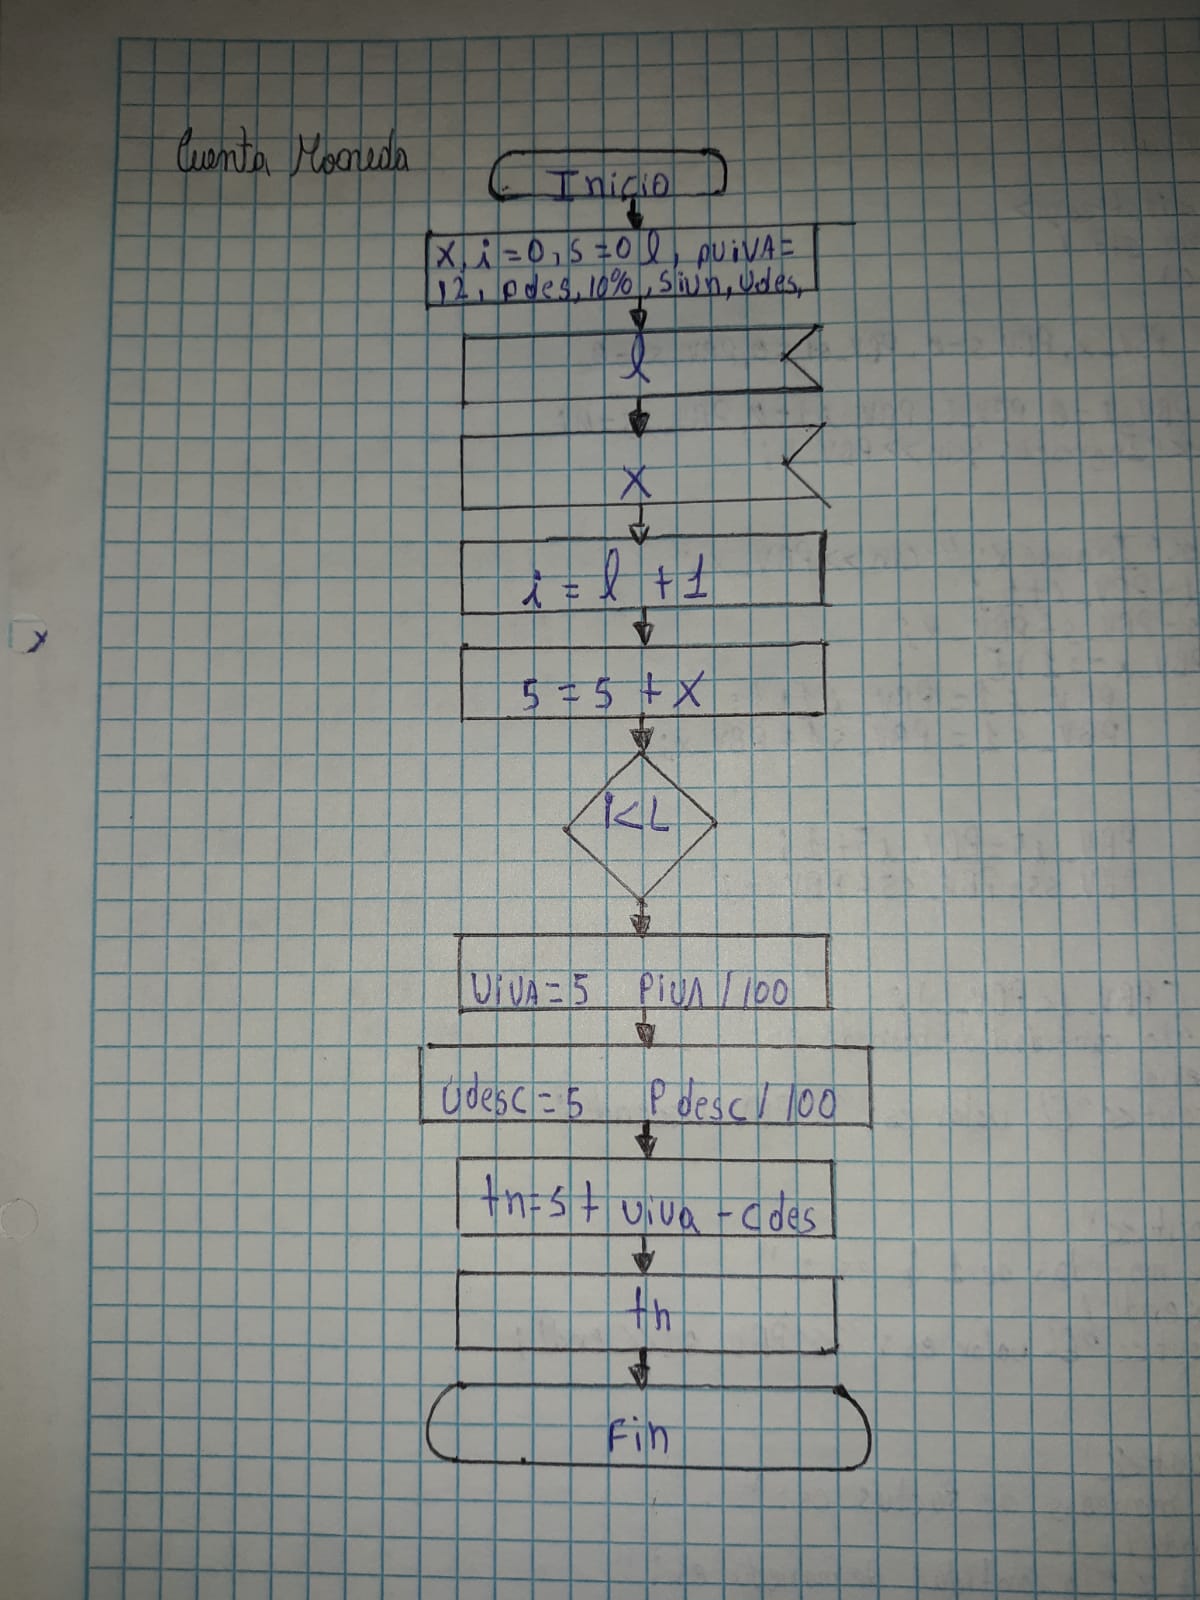 Cuenta Moneda
Inicio
x, i = 0, s = 0 l, pviVA =
12, Pdes, 10%, Sivn, Vdes,
l
x
i = l + 1
s = s + x
i < L
ViVA = s PiVA / 100
Vdesc = s Pdesc / 100
tn = s + viva - cdes
tn
Fin
x